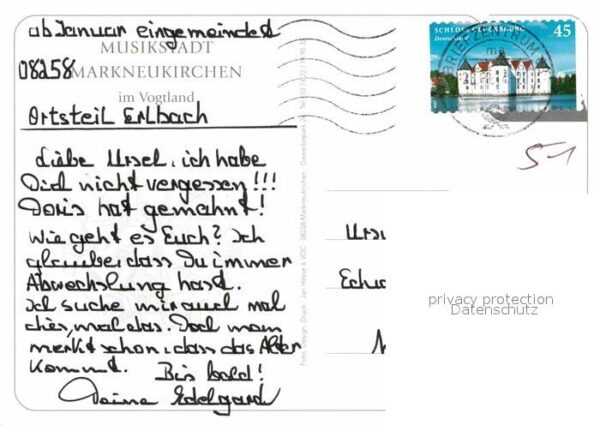 ab Januar eingemeindet
MUSIKSTADT
08258 MARKNEUKIRCHEN
im Vogtland
Ortsteil Erlbach
Liebe Ursel, ich habe
Dich nicht vergessen!!!
Doris hat gemahnt!
Wie geht es Euch? Ich
glaube, dass Du immer
Abwechslung hast.
Ich suche mir auch mal
dies, mal das. Doch man
merkt schon, dass das Alter
kommt. Bis bald!
Deine Edelgard
SCHLOSS GLÜCKSBURG
Deutschland
45
BRIEFZENTRUM
51
Urs
privacy protection
Datenschutz